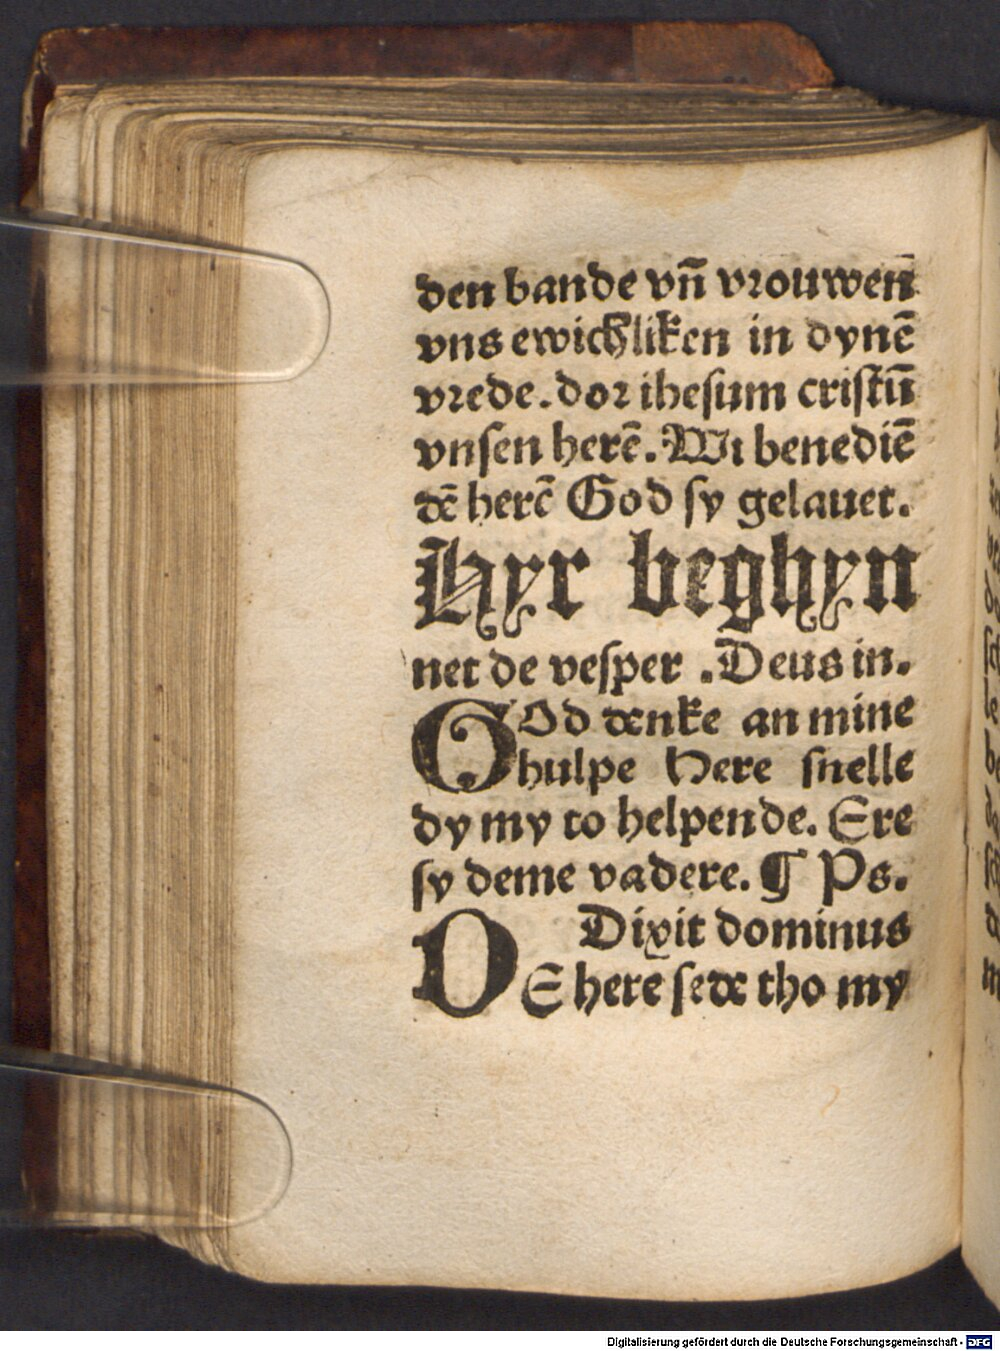 den bande vn̄ vrouwen̄
vns ewichliken in dynē
vrede. dor ihesum cristū
vnsen herē. Wi benediē
dē herē God sy gelauet.
Hyr beghyn
net de vesper . Deus in.
GOd denke an mine
hulpe Here snelle
dy my to helpende. Ere
sy deme vadere. ¶ Ps.
Dixit dominus
DE here sede tho my
Digitalisierung gefördert durch die Deutsche Forschungsgemeinschaft - DFG